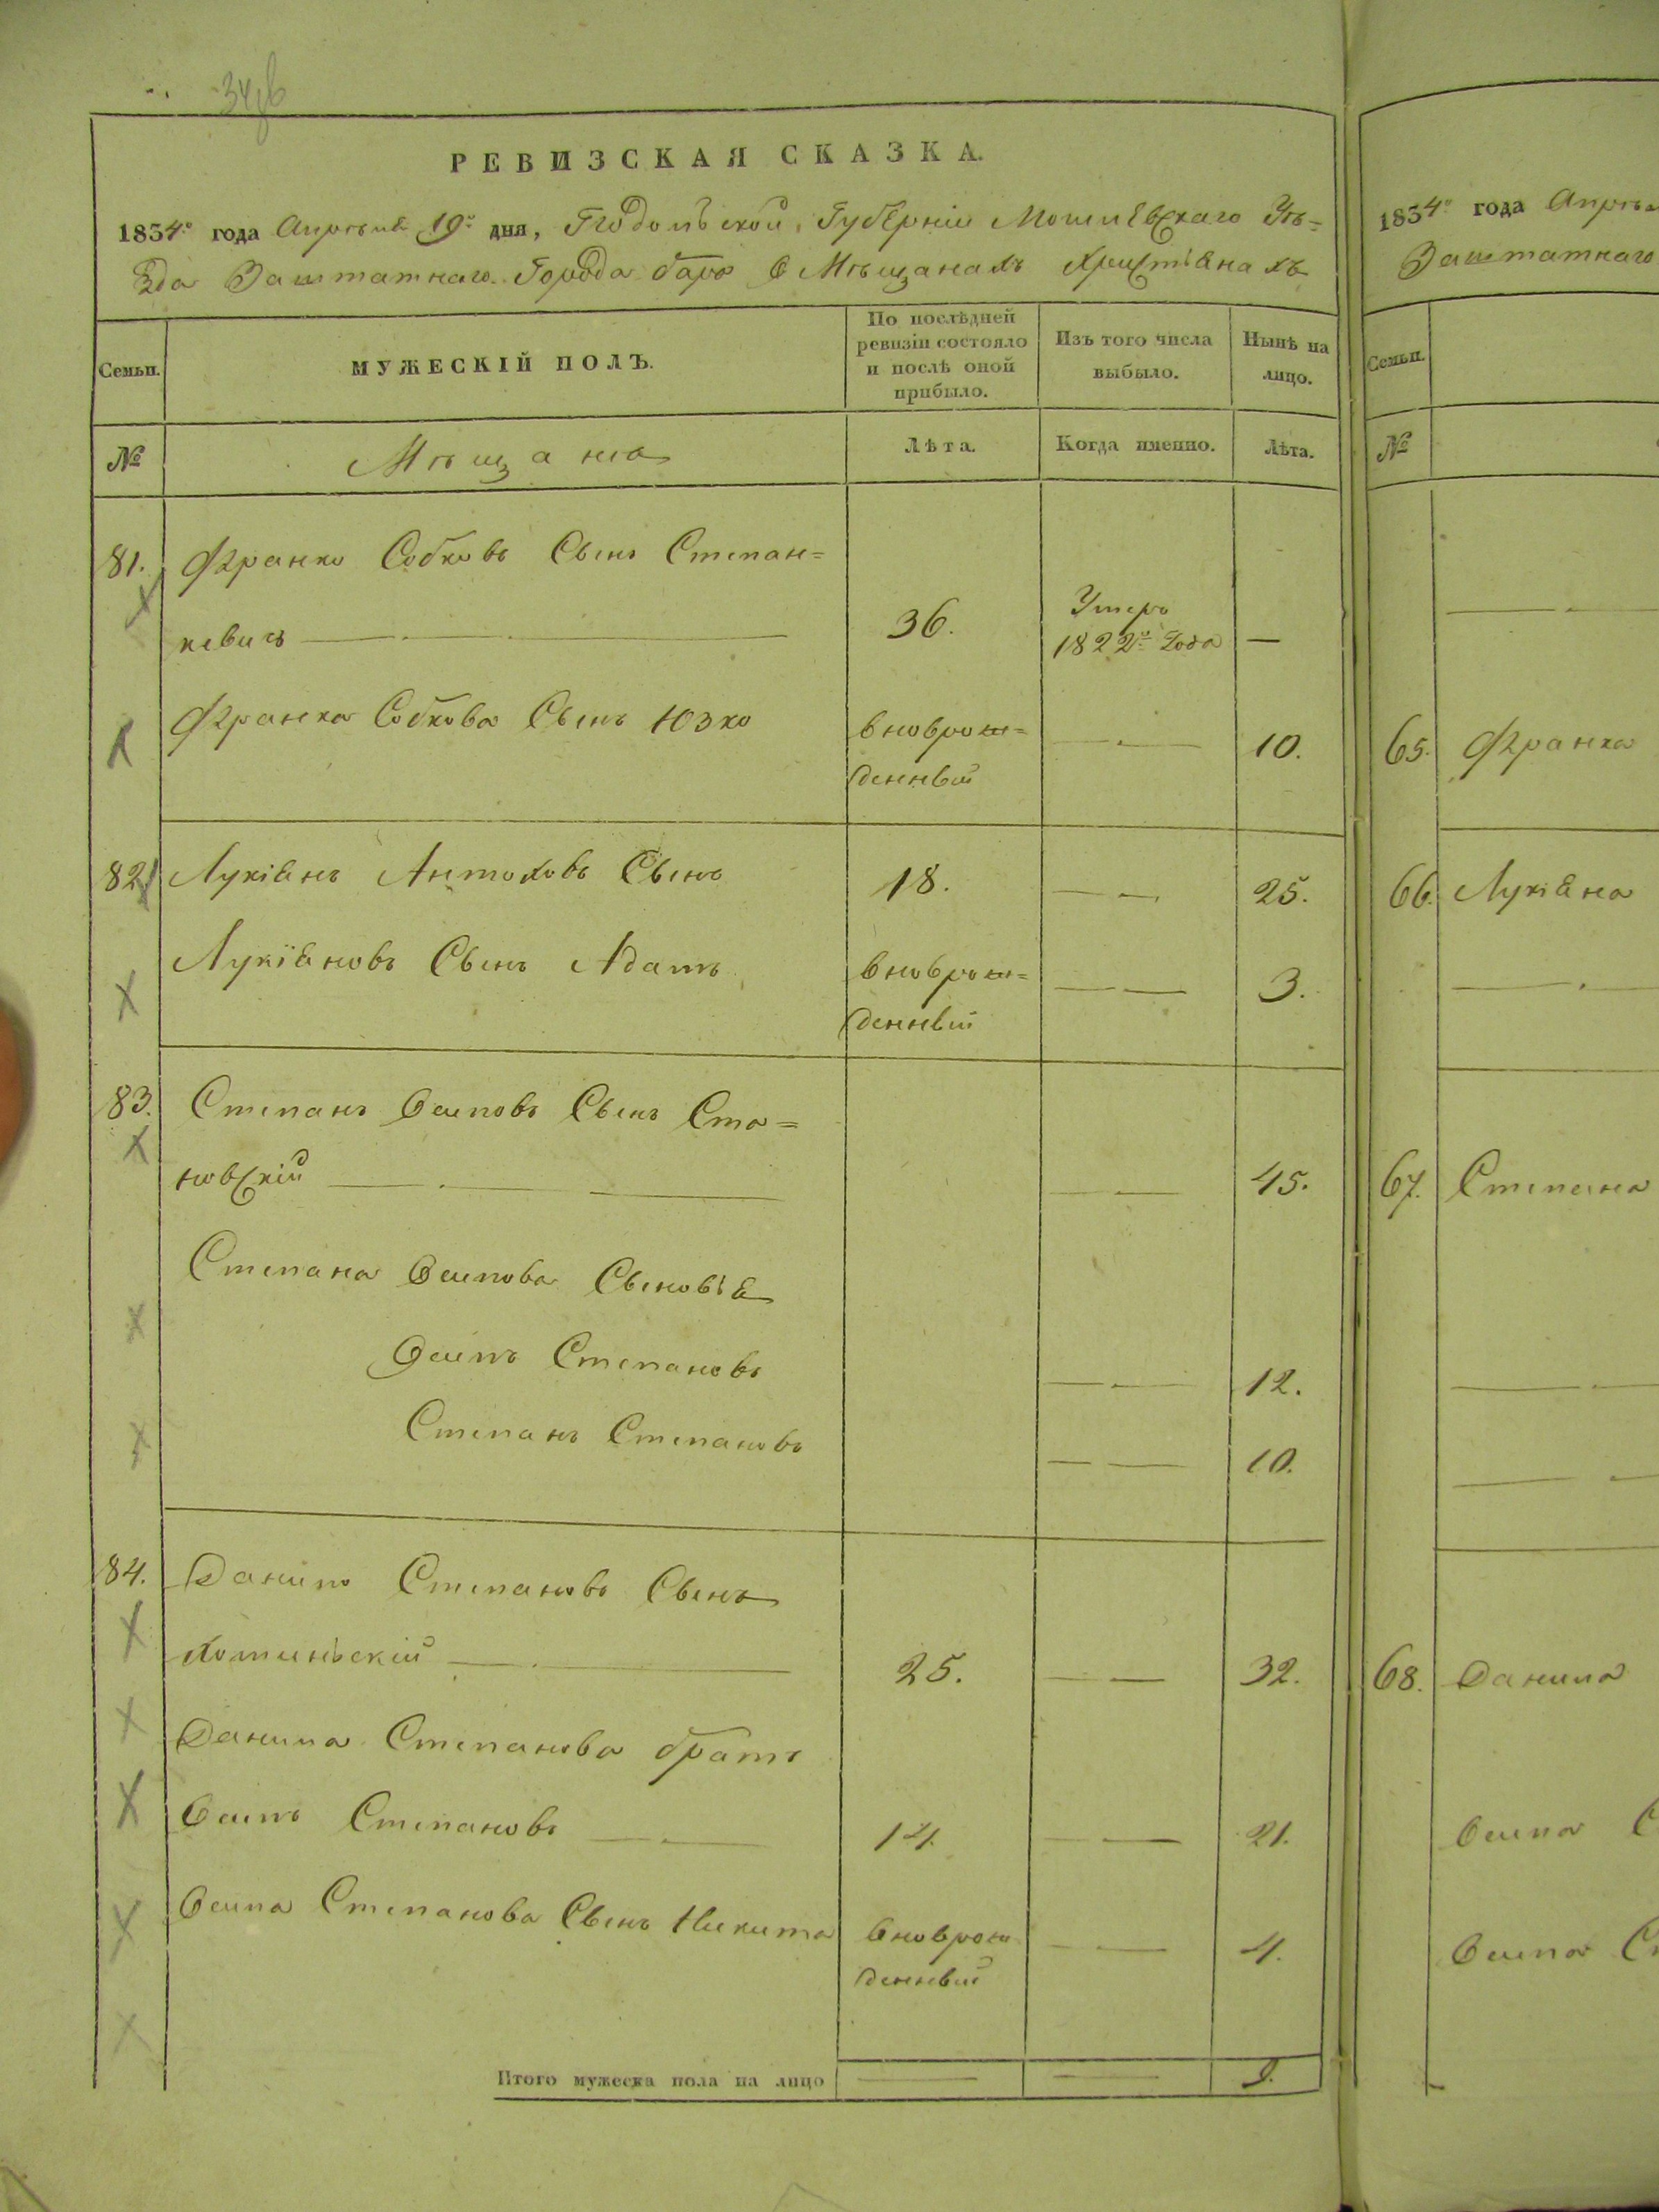 РЕВИЗСКАЯ СКАЗКА.
1834го года Апрѣля 19го дня, Подольской Губерніи Могилевскаго Уѣ=
зда Заштатнаго Города Бара О Мѣщанахъ Христіанахъ
Семьи.
МУЖЕСКІЙ ПОЛЪ.
По послѣдней ревизіи состояло и послѣ оной прибыло.
Изъ того числа выбыло.
Нынѣ на лицо.
№
Мѣщане
Лѣта.
Когда именно.
Лѣта.
81. Франко Собковъ Сынъ Степан=
кевичъ 36. Умеръ 1822го Года —
Франка Собкова Сынъ Юзко вноврож=денный 10.
82. Лукіянъ Антоховъ Сынъ 18. 25.
Лукіяновъ Сынъ Адамъ вноврож=денный 3.
83. Степанъ Осиповъ Сынъ Ста=
новскій 45.
Степана Осипова Сыновья
Осипъ Степановъ 12.
Степанъ Степановъ 10.
84. Данило Степановъ Сынъ
Хотинскій 25. 32.
Данила Степанова братъ
Осипъ Степановъ 14. 21.
Осипа Степанова Сынъ Никита вноврожденный 4.
Итого мужеска пола на лицо 9.
1834го года Апрѣля
Заштатнаго
Семьи.
№
65. Франка
66. Лукіяна
67. Степана
68. Данила
Осипа
Осипа